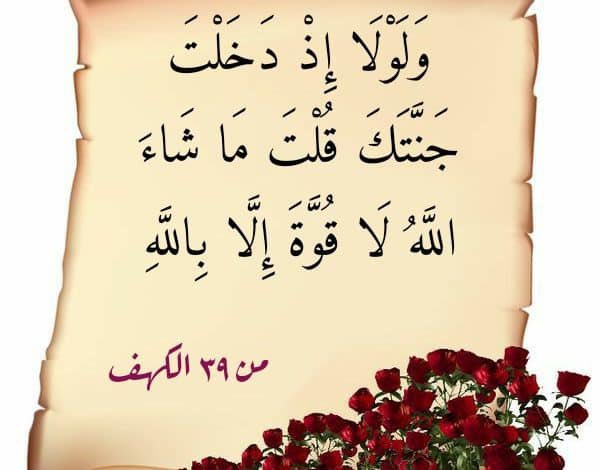 وَلَوْلَا إِذْ دَخَلْتَ
جَنَّتَكَ قُلْتَ مَا شَاءَ
اللَّهُ لَا قُوَّةَ إِلَّا بِاللَّهِ
من ٣٩ الكهف